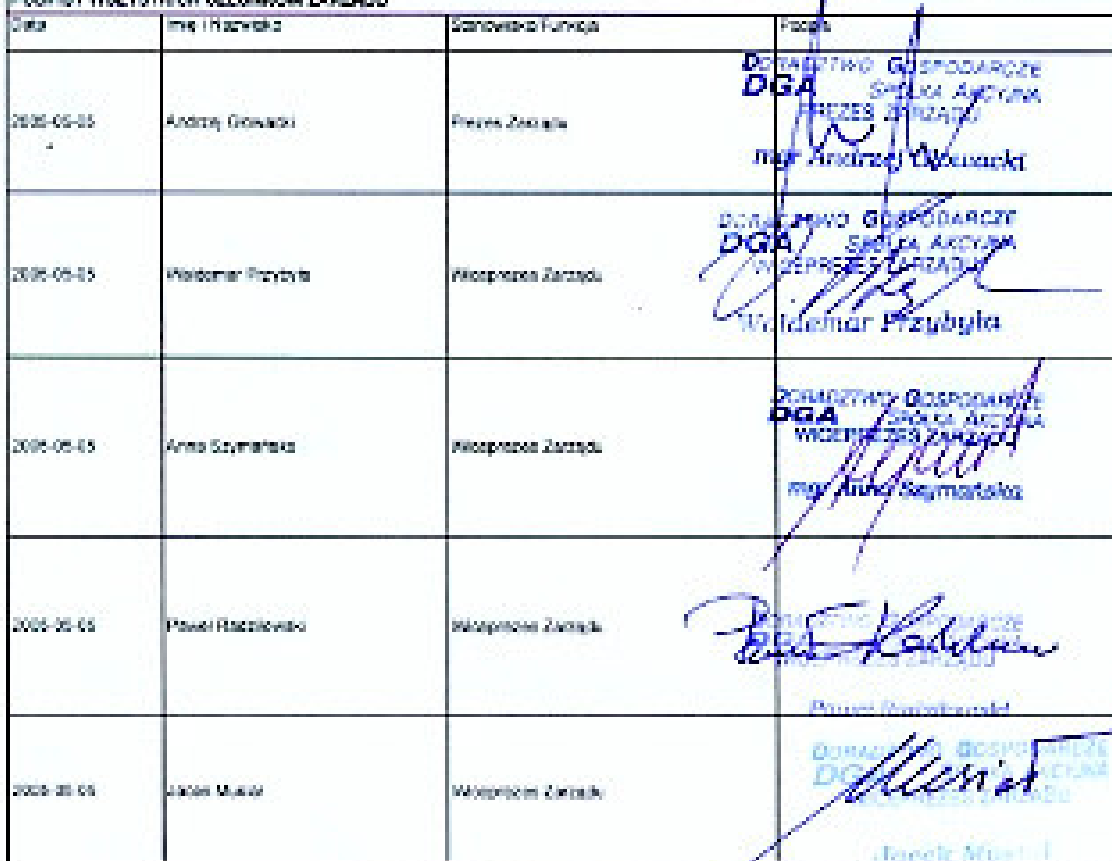 PODPISY WSZYSTKICH CZŁONKÓW ZARZĄDU
Data Imię i Nazwisko Stanowisko/Funkcja Podpis
Andrzej Głowacki Prezes Zarządu
DORADZTWO GOSPODARCZE
DGA SPÓŁKA AKCYJNA
PREZES ZARZĄDU
mgr Andrzej Głowacki
Waldemar Przybyła Wiceprezes Zarządu
DORADZTWO GOSPODARCZE
DGA SPÓŁKA AKCYJNA
WICEPREZES ZARZĄDU
Waldemar Przybyła
Anna Szymańska Wiceprezes Zarządu
DORADZTWO GOSPODARCZE
DGA SPÓŁKA AKCYJNA
WICEPREZES ZARZĄDU
mgr Anna Szymańska
Paweł Wiceprezes Zarządu
DORADZTWO GOSPODARCZE
DGA
WICEPREZES ZARZĄDU
Paweł
Jacek Musiał Wiceprezes Zarządu
DORADZTWO GOSPODARCZE
DGA SPÓŁKA AKCYJNA
WICEPREZES ZARZĄDU
Jacek Musiał